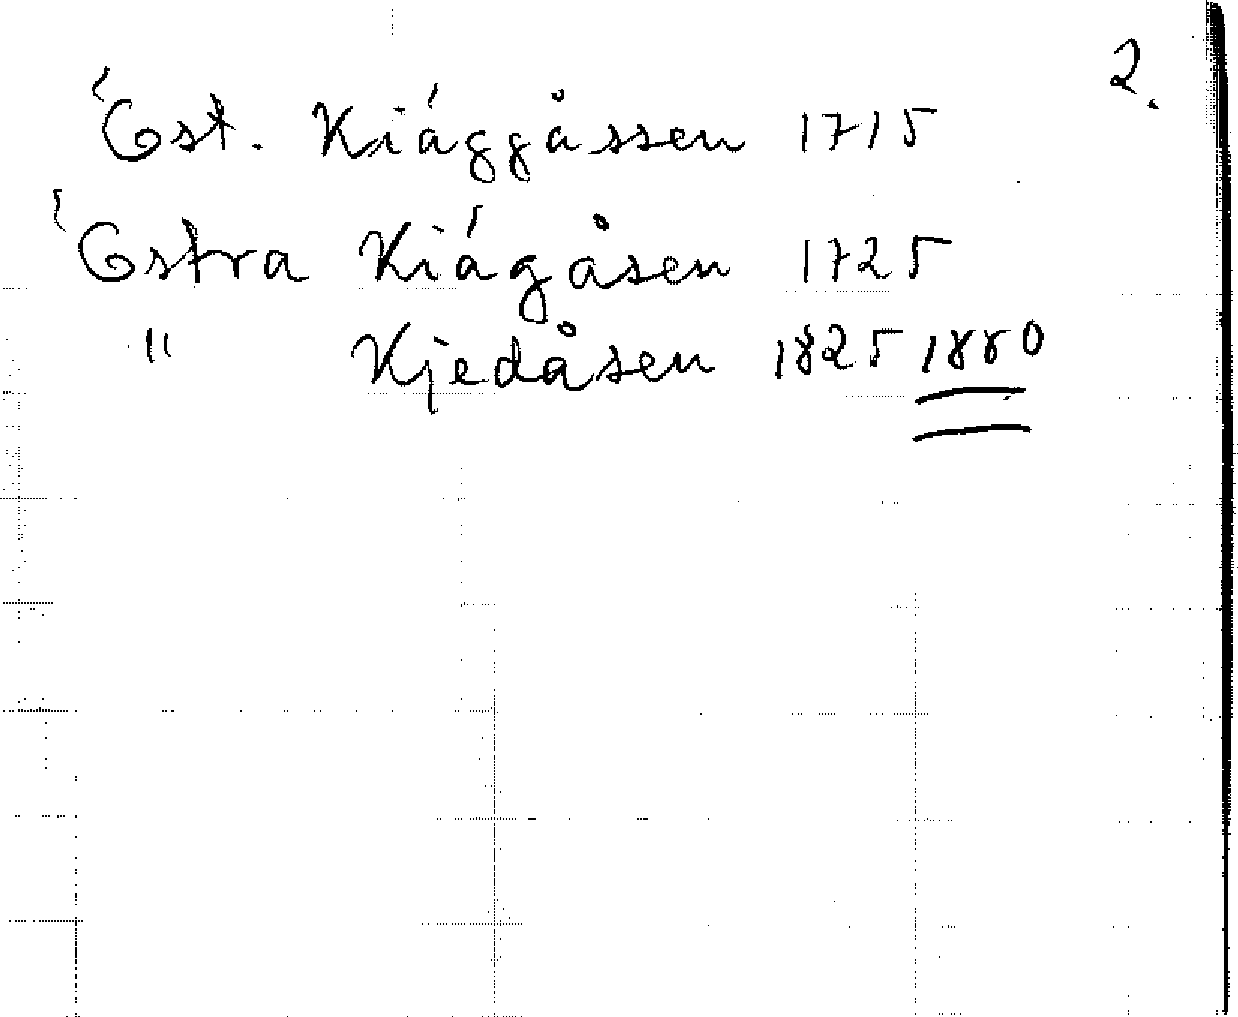 2.
Óst. Kiággåssen 1715
Óstra Kiágåsen 1725
" Kjedåsen 1825 1880